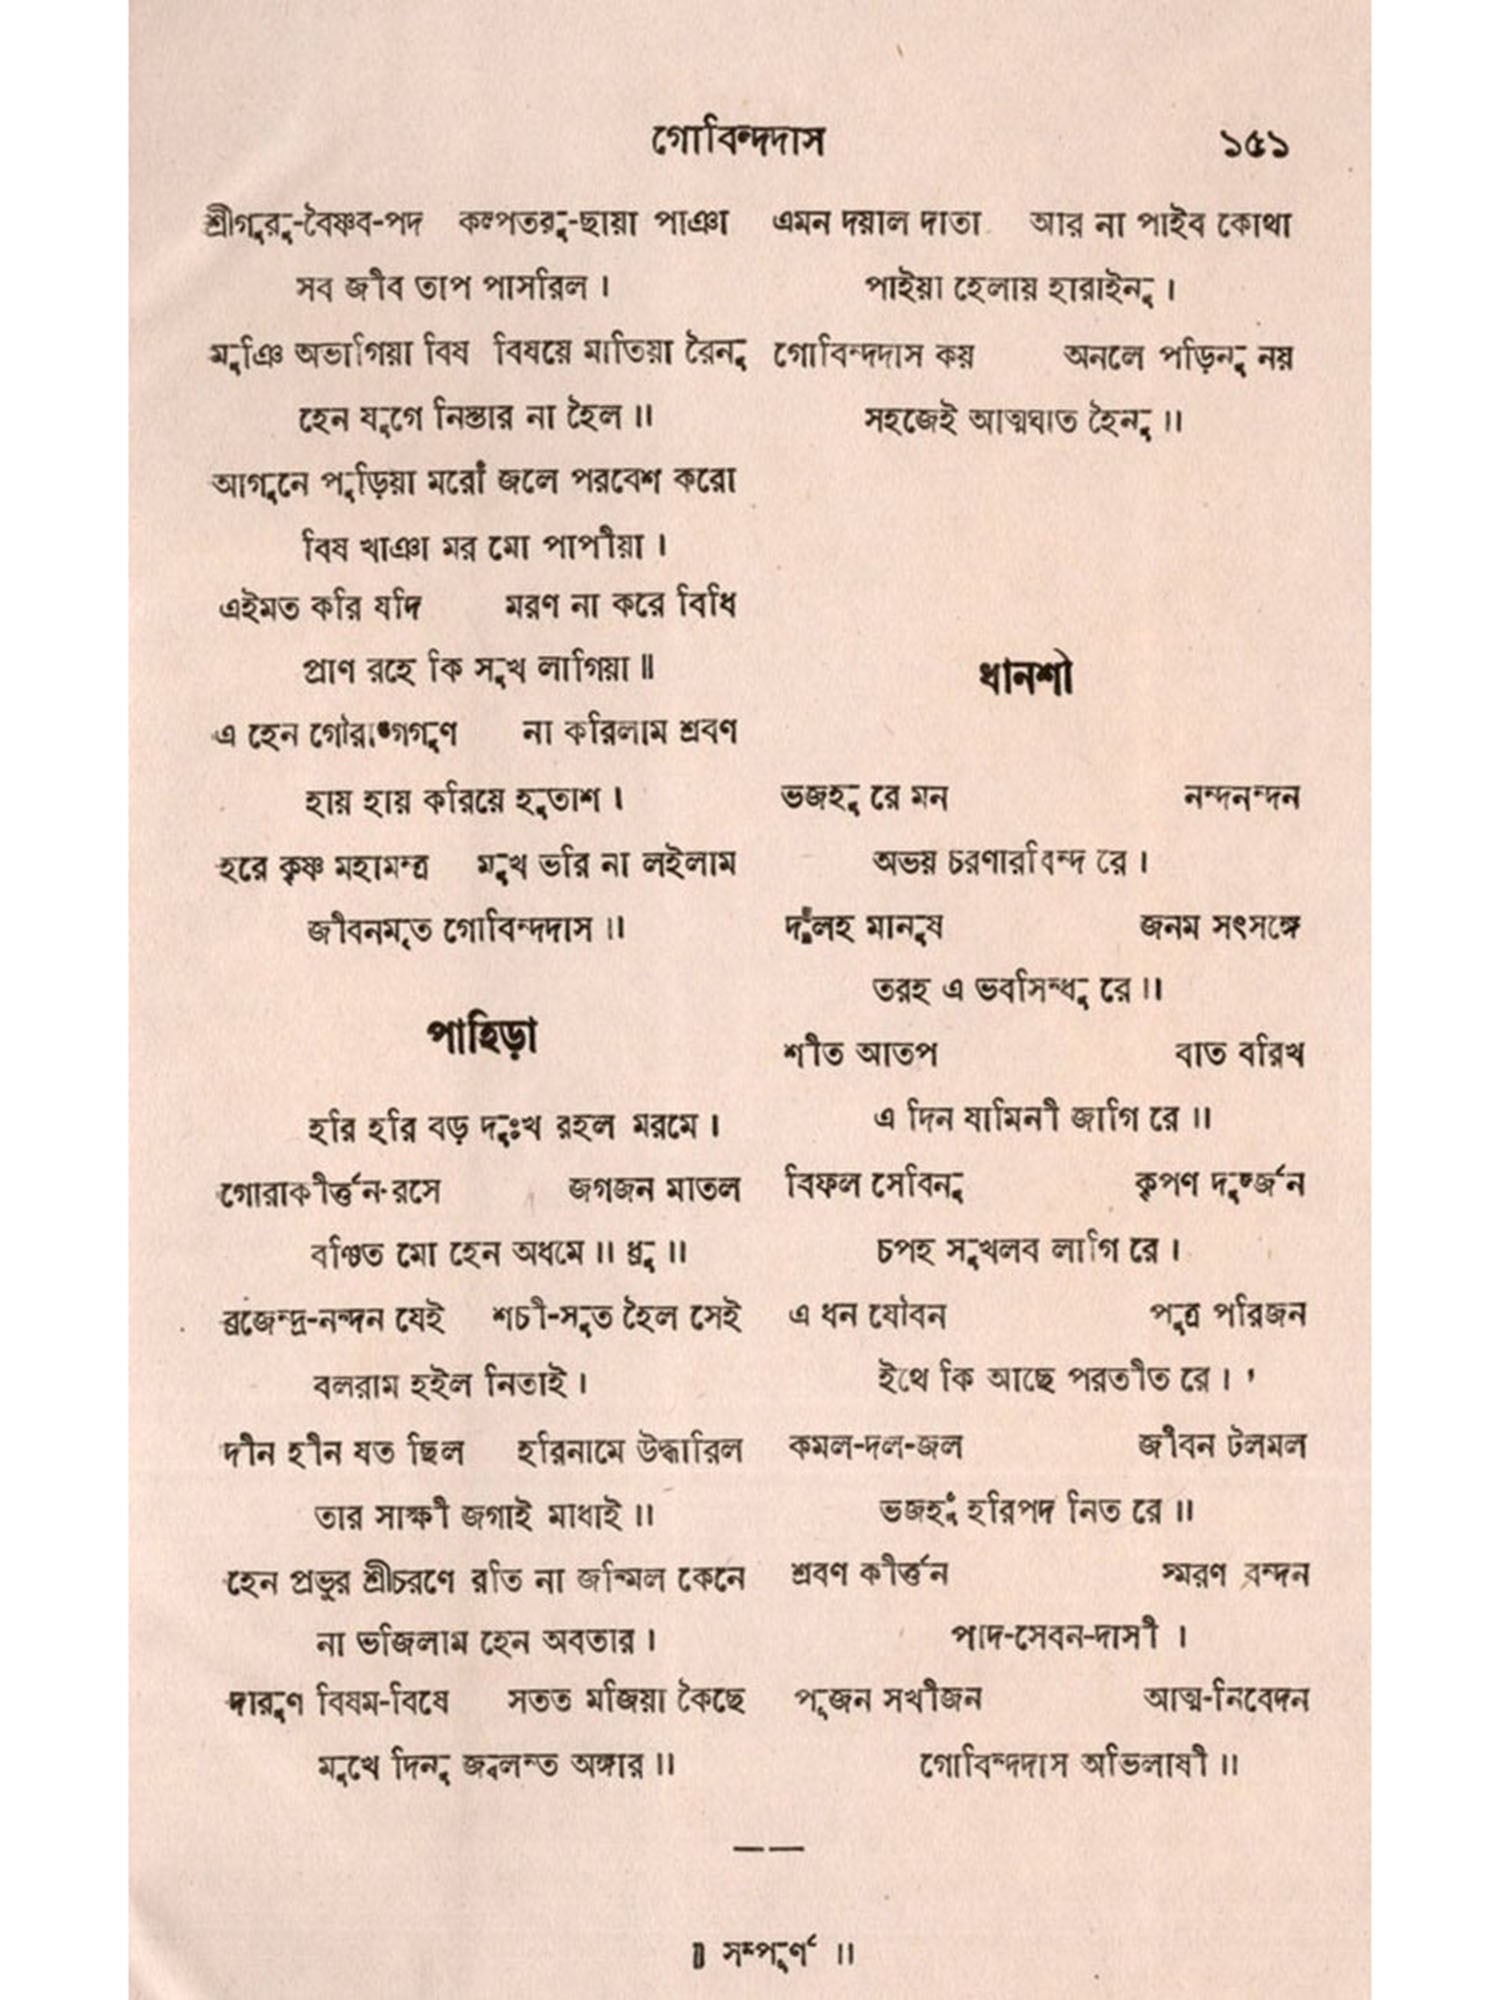 গোবিন্দদাস ১৫১
শ্রীগুরু-বৈষ্ণব-পদ কল্পতরু-ছায়া পাঞা
সব জীব তাপ পাসরিল ।
মুঞি অভাগিয়া বিষ বিষয়ে মাতিয়া রৈনু
হেন যুগে নিস্তার না হৈল ॥
আগুনে পুড়িয়া মরোঁ জলে পরবেশ করো
বিষ খাঞা মর মো পাপীয়া ।
এইমত করি যদি মরণ না করে বিধি
প্রাণ রহে কি সুখ লাগিয়া ॥
এ হেন গৌরাঙ্গগুণ না করিলাম শ্রবণ
হায় হায় করিয়ে হুতাশ ।
হরে কৃষ্ণ মহামন্ত্র মুখ ভরি না লইলাম
জীবনমৃত গোবিন্দদাস ॥
পাহিড়া
হরি হরি বড় দুঃখ রহল মরমে ।
গোরাকীর্ত্তন-রসে জগজন মাতল
বঞ্চিত মো হেন অধমে ॥ ধ্রু ॥
ব্রজেন্দ্র-নন্দন যেই শচী-সুত হৈল সেই
বলরাম হইল নিতাই ।
দীন হীন যত ছিল হরিনামে উদ্ধারিল
তার সাক্ষী জগাই মাধাই ॥
হেন প্রভুর শ্রীচরণে রতি না জন্মিল কেনে
না ভজিলাম হেন অবতার ।
দারুণ বিষম-বিষে সতত মজিয়া কৈছে
মুখে দিনু জ্বলন্ত অঙ্গার ॥
এমন দয়াল দাতা আর না পাইব কোথা
পাইয়া হেলায় হারাইনু ।
গোবিন্দদাস কয় অনলে পড়িনু নয়
সহজেই আত্মঘাত হৈনু ॥
ধানশী
ভজহু রে মন নন্দনন্দন
অভয় চরণারবিন্দ রে ।
দুঁলহ মানুষ জনম সৎসঙ্গে
তরহ এ ভবসিন্ধু রে ॥
শীত আতপ বাত বরিখ
এ দিন যামিনী জাগি রে ॥
বিফল সেবিনু কৃপণ দুর্জ্জন
চপহ সুখলব লাগি রে ।
এ ধন যৌবন পুত্র পরিজন
ইথে কি আছে পরতীত রে ।
কমল-দল-জল জীবন টলমল
ভজহুঁ হরিপদ নিত রে ॥
শ্রবণ কীর্ত্তন স্মরণ বন্দন
পাদ-সেবন-দাসী ।
পূজন সখীজন আত্ম-নিবেদন
গোবিন্দদাস অভিলাষী ॥
॥ সম্পূর্ণ ॥